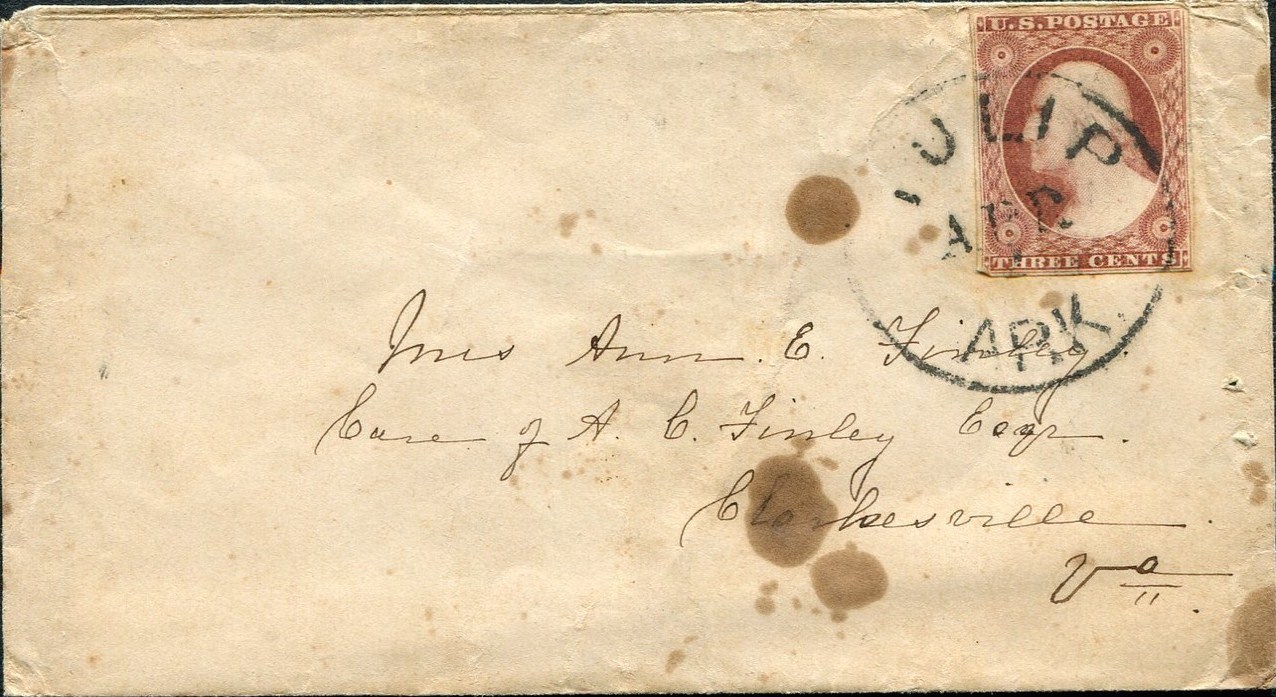 U.S. POSTAGE
THREE CENTS
TULIP
APR
ARK.
Mrs Ann. E. Finley.
Care of A. C. Finley Esqr.
Clarkesville
Va.